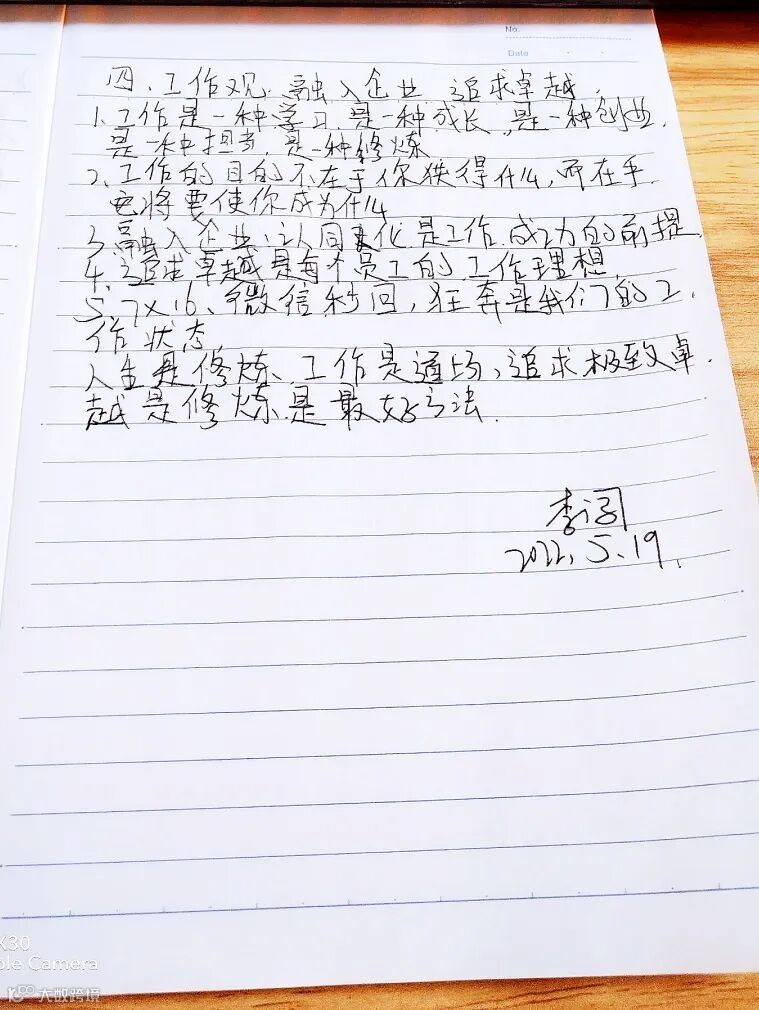 No.
Date
四、工作观:融入企业 追求卓越.
1.工作是一种学习,是一种成长,是一种创业.
是一种担当,是一种修炼
2、工作的目的不在于你获得什么,而在乎.
它将要使你成为什么
3、融入企业,认同文化是工作成功的前提.
4、追求卓越是每个员工的工作理想.
5、7X16、微信秒回,狂奔是我们的工
作状态.
人生是修炼、工作是道场、追求极致卓
越是修炼是最好方法.
2022.5.19.
X30
ble Camera
大数跨境